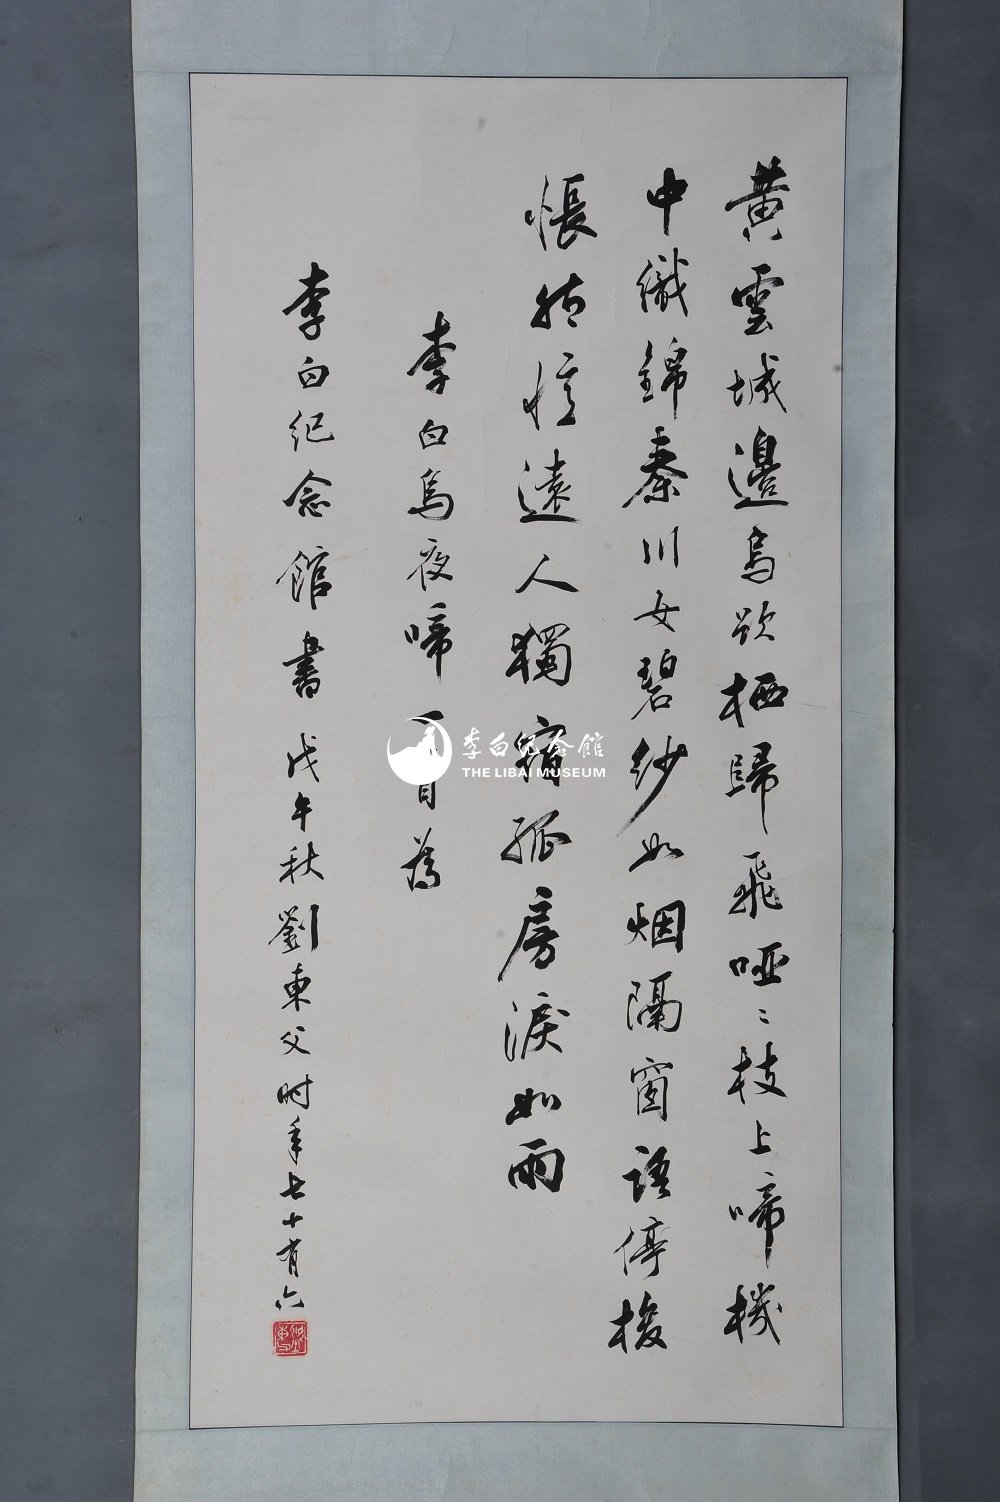 黄雲城邊烏欲栖歸飛哑〻枝上啼機
中織錦秦川女碧纱如烟隔窗語停梭
悵然憶遠人獨宿孤房淚如雨
李白烏夜啼一首為
李白纪念館書戊午秋劉東父时年七十有六
李白纪念館
THE LIBAI MUSEUM